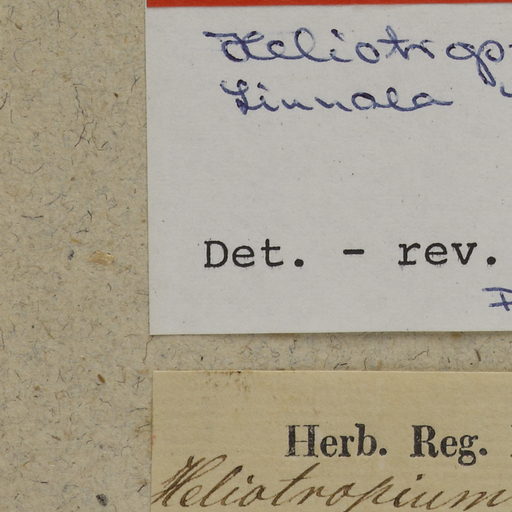 Heliotrop
Linnaea
Det. - rev.
Herb. Reg.
Heliotropium